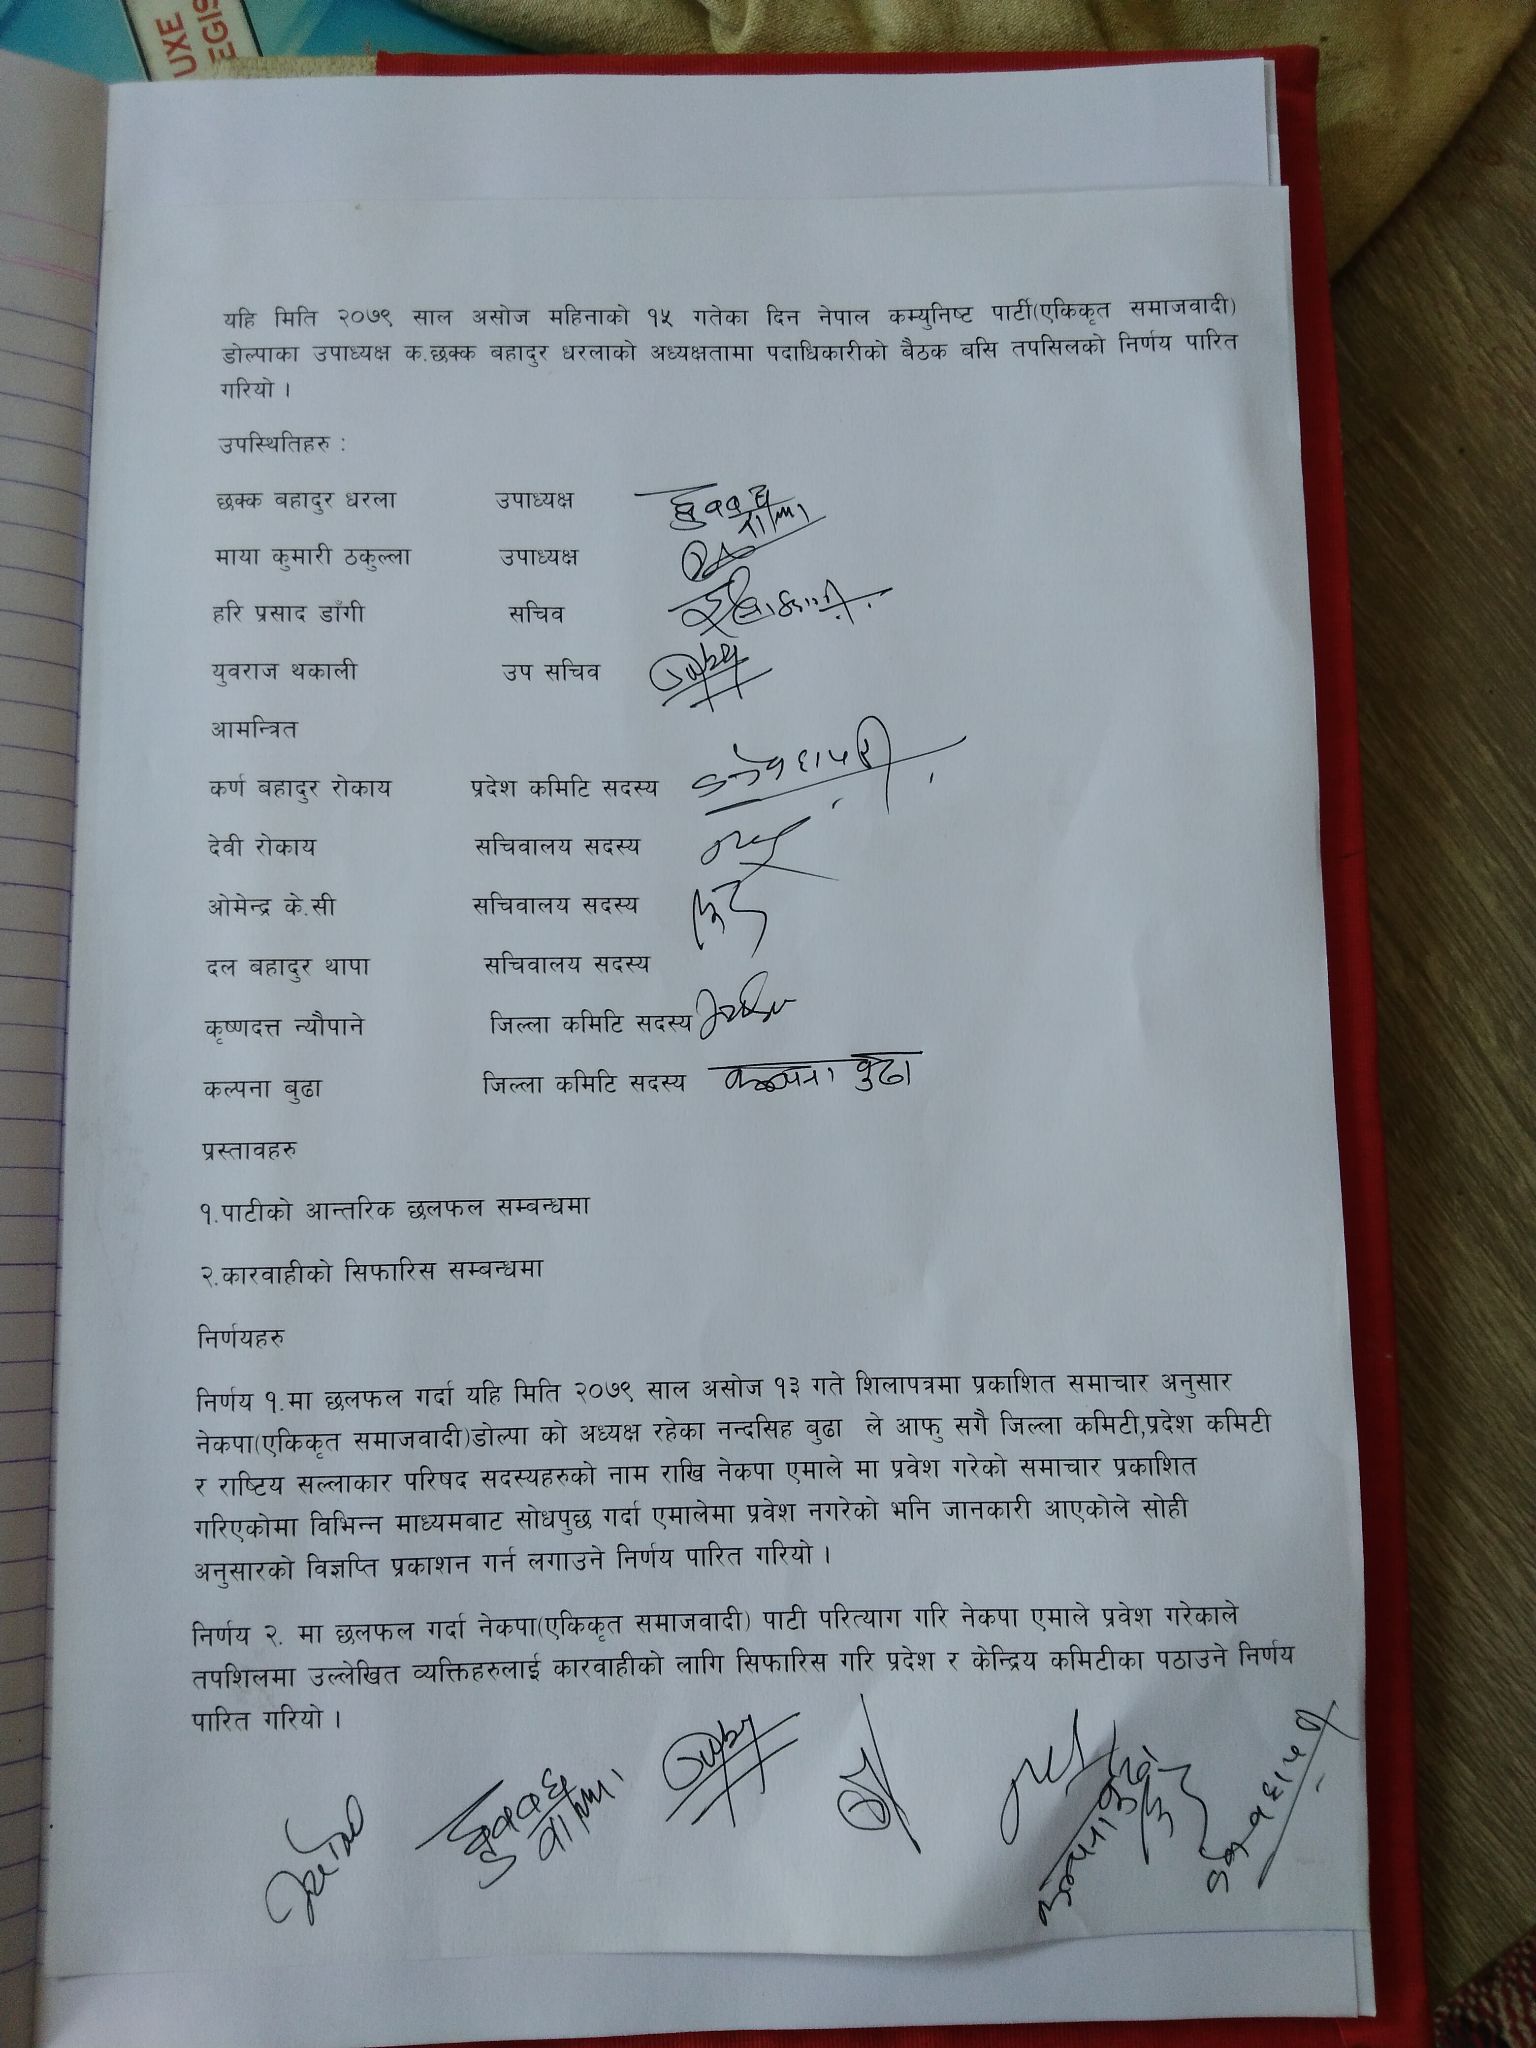 UXE
EGIS
यहि मिति २०७९ साल असोज महिनाको १५ गतेका दिन नेपाल कम्युनिष्ट पार्टी(एकिकृत समाजवादी)
डोल्पाका उपाध्यक्ष क.छक्क बहादुर धरलाको अध्यक्षतामा पदाधिकारीको बैठक बसि तपसिलको निर्णय पारित
गरियो ।
उपस्थितिहरु :
छक्क बहादुर धरला उपाध्यक्ष
माया कुमारी ठकुल्ला उपाध्यक्ष
हरि प्रसाद डाँगी सचिव
युवराज थकाली उप सचिव
आमन्त्रित
कर्ण बहादुर रोकाय प्रदेश कमिटि सदस्य
देवी रोकाय सचिवालय सदस्य
ओमेन्द्र के.सी सचिवालय सदस्य
दल बहादुर थापा सचिवालय सदस्य
कृष्णदत्त न्यौपाने जिल्ला कमिटि सदस्य
कल्पना बुढा जिल्ला कमिटि सदस्य कल्पना बुढा
प्रस्तावहरु
१.पाटीको आन्तरिक छलफल सम्बन्धमा
२.कारवाहीको सिफारिस सम्बन्धमा
निर्णयहरु
निर्णय १.मा छलफल गर्दा यहि मिति २०७९ साल असोज १३ गते शिलापत्रमा प्रकाशित समाचार अनुसार
नेकपा(एकिकृत समाजवादी)डोल्पा को अध्यक्ष रहेका नन्दसिह बुढा ले आफु सगै जिल्ला कमिटी,प्रदेश कमिटी
र राष्टिय सल्लाकार परिषद सदस्यहरुको नाम राखि नेकपा एमाले मा प्रवेश गरेको समाचार प्रकाशित
गरिएकोमा विभिन्न माध्यमबाट सोधपुछ गर्दा एमालेमा प्रवेश नगरेको भनि जानकारी आएकोले सोही
अनुसारको विज्ञप्ति प्रकाशन गर्न लगाउने निर्णय पारित गरियो ।
निर्णय २. मा छलफल गर्दा नेकपा(एकिकृत समाजवादी) पाटी परित्याग गरि नेकपा एमाले प्रवेश गरेकाले
तपशिलमा उल्लेखित व्यक्तिहरुलाई कारवाहीको लागि सिफारिस गरि प्रदेश र केन्द्रिय कमिटीका पठाउने निर्णय
पारित गरियो ।